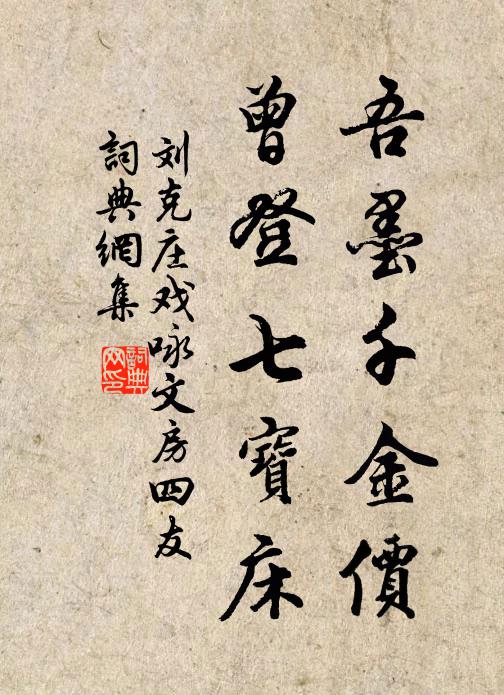 吾墨千金價
曾登七寶床
刘克庄戏咏文房四友
詞典網集
詞典網印